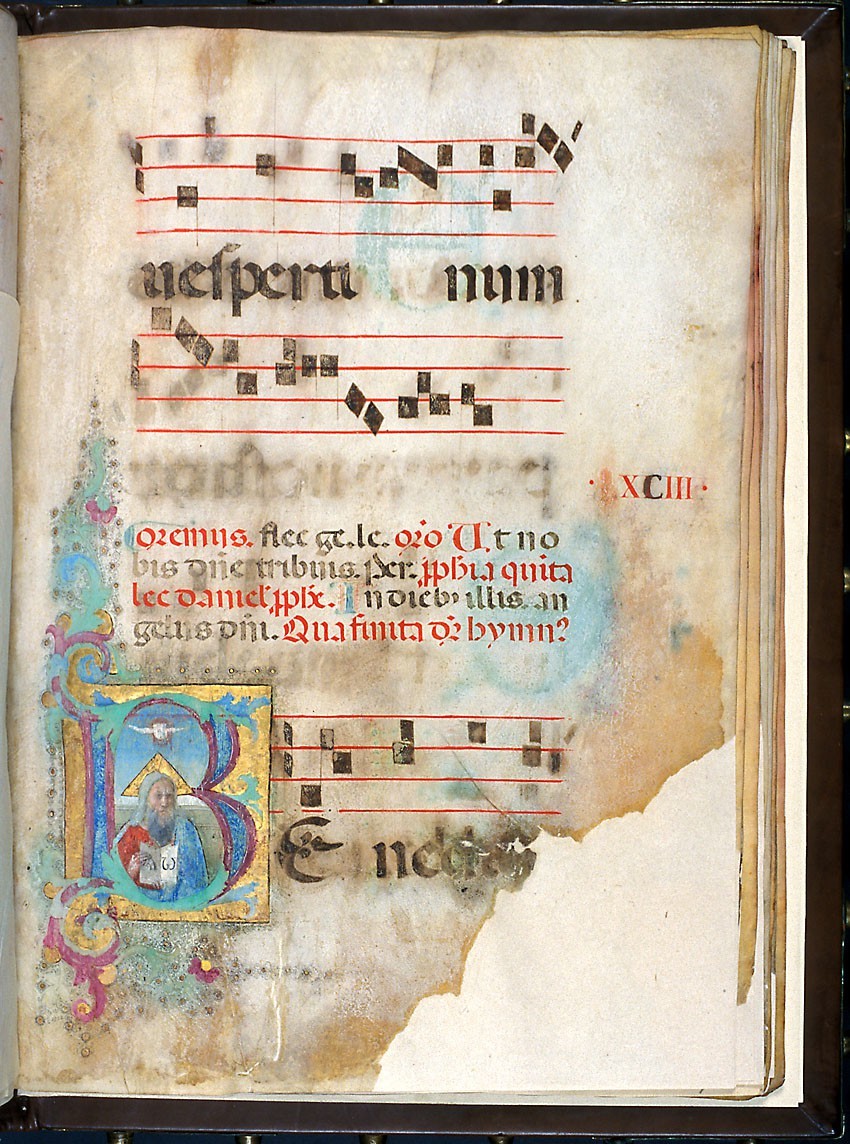 uesperti num
· LXCIII ·
Oremus. flec ge. le. oro Ut no
bis dne tribuis. Per. pphia quita
lec daniel pphe. In dieb illis. an
gelus dni. Qua finita dr hymn
B
E nedictus
A ω